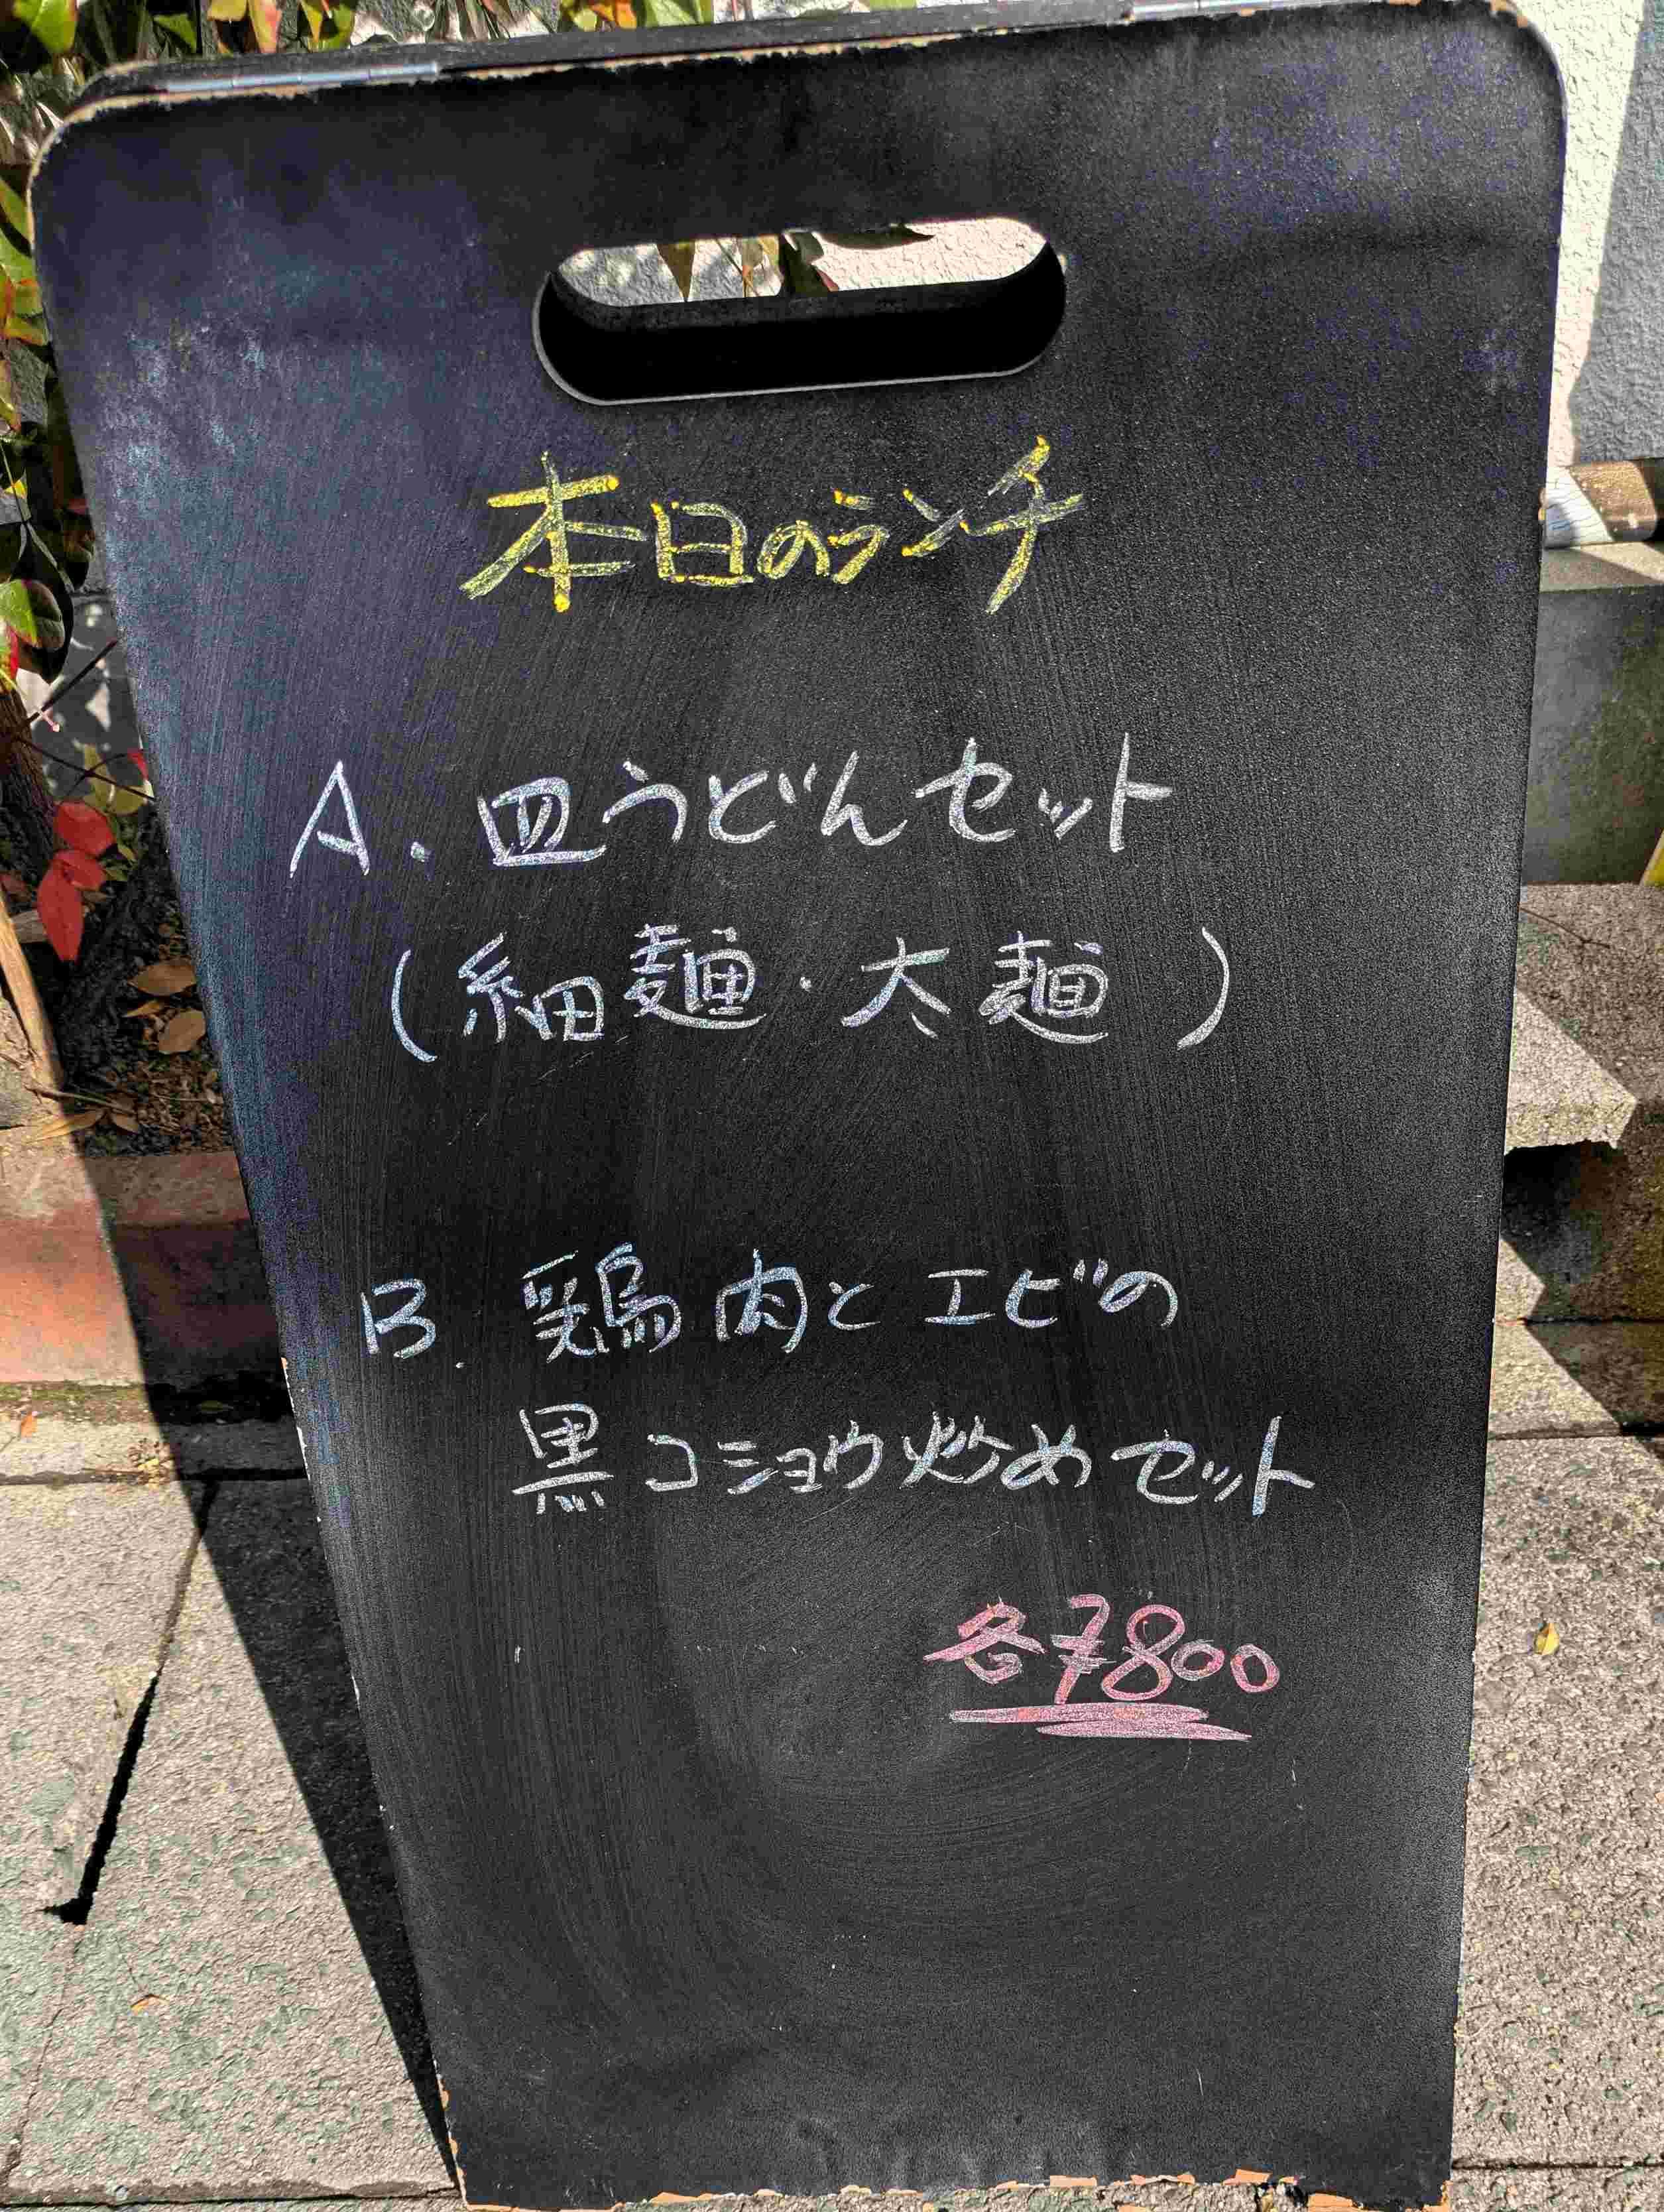 本日のランチ
A. 皿うどんセット
(細麺・太麺)
B. 鶏肉とエビの
黒コショウ炒めセット
各¥800